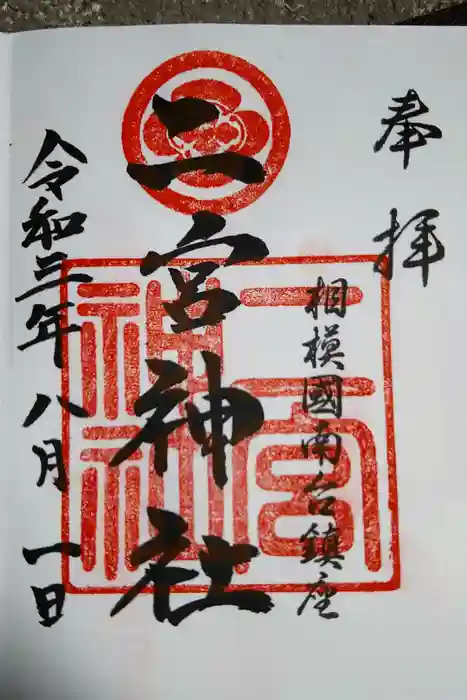 奉拝
相模國南台鎮座
二宮神社
令和三年八月一日
二宮神社